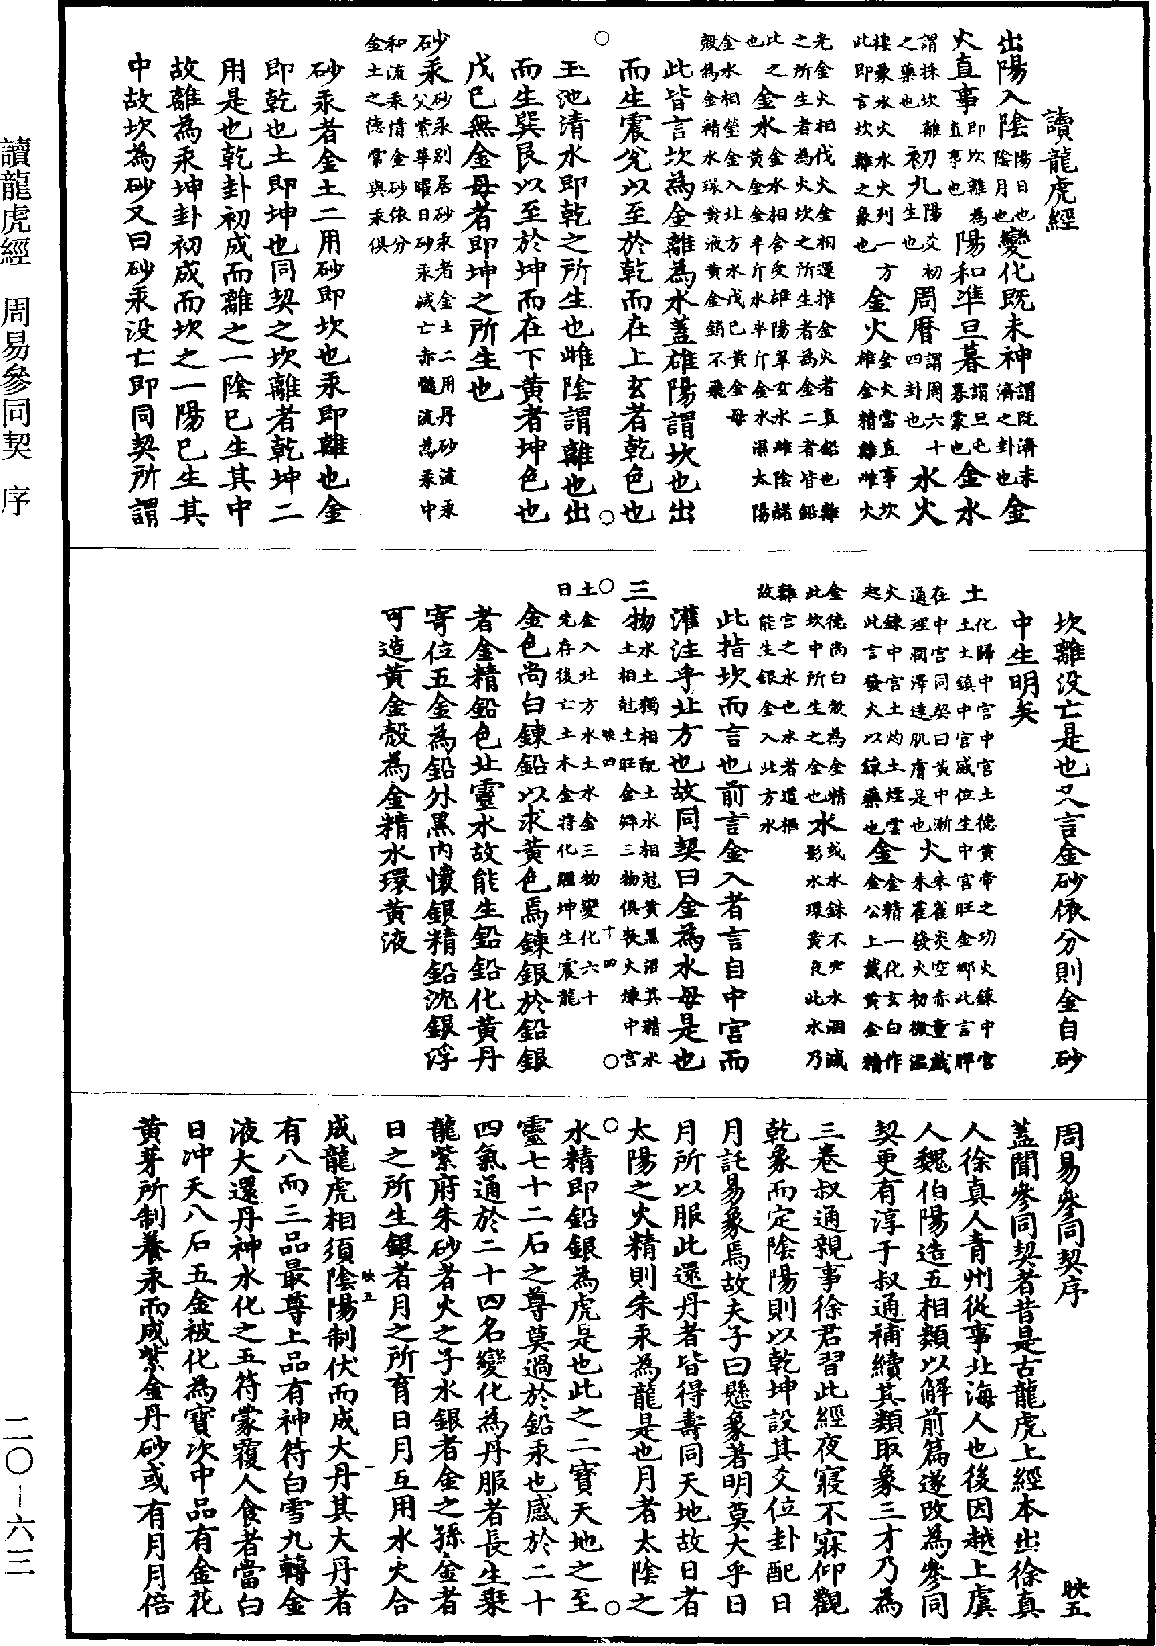 讀龍虎經
出陽入陰陽日也陰月也變化既未神謂既濟未濟之卦也金
火直事即坎離為直事也陽和準旦暮謂旦屯暮蒙也金水
謂採坎離之藥也初九陽爻初生也周曆謂周六十四卦也水火
接象水火水火列一方此即言坎離之象也金火金火當直事坎雄金精離雌火
光金火相伐火金相還推金火者真鉛也離之所生者為火坎之所生者為金二者皆鉛
此之也金水金水相含受雄陽翠玄水雌陰赭黃金金半斤水半斤金水濕太陽
金水相瑩金入北方水戊已黃金母殼為金精水環黃液黃金銷不飛
此皆言坎為金離為水蓋雄陽謂坎也出
而生震兌以至於乾而在上玄者乾色也
玉池清水即乾之所生也雌陰謂離也出
而生巽艮以至於坤而在下黃者坤色也
戊已無金母者即坤之所生也
砂汞砂汞別居砂汞者金土二用丹砂流汞父紫華曜日砂汞滅亡赤髓流為汞中
和流汞情金砂依分金土之德常與汞俱
砂汞者金土二用砂即坎也汞即離也金
即乾也土即坤也同契之坎離者乾坤二
用是也乾卦初成而離之一陰已生其中
故離為汞坤卦初成而坎之一陽已生其
中故坎為砂又曰砂汞沒亡即同契所謂
坎離沒亡是也又言金砂依分則金自砂
中生明矣
土化歸中宮中宮土德黃帝之功火鍊中宮土土鎮中宮戚位生中宮旺金鄉此言脾
在中宮同契曰黃中漸通理潤澤達肌膚是也火朱雀炎空赤童戲朱雀發火初微溫
火鍊中宮土灼土煙雲起此言發火以鍊藥也金金精一化玄白作金公上戴黃金精
金德尚白殼為金精或水銖不定水涸滅此坎中所生之金也水影水環黃皮此水乃
離宮之水也水者道樞故能生銀金入北方水
此指坎而言也前言金入者言自中宮而
灌注乎北方也故同契曰金為水母是也
三物水土獨相配土水相尅黃黑沼其精水土相尅土旺金鄉三物俱喪火煉中宮
土金入北方水土水金三物變化六十日先存後亡土木金符化躍坤生震龍
金色尚白鍊鉛以求黃色焉鍊銀於鉛銀
者金精鉛色北靈水故能生鉛鉛化黃丹
寄位五金為鉛外黑內懷銀精鉛沈銀浮
可造黃金殼為金精水環黃液
映四
十四
周易參同契序
映五
蓋聞參同契者昔是古龍虎上經本出徐真
人徐真人青州從事北海人也後因越上虞
人魏伯陽造五相類以解前篇遂改為參同
契更有淳于叔通補續其類取象三才乃為
三卷叔通親事徐君習此經夜寢不寐仰觀
乾象而定陰陽則以乾坤設其爻位卦配日
月託易象焉故夫子曰懸象著明莫大乎日
月所以服此還丹者皆得壽同天地故日者
太陽之火精則朱汞為龍是也月者太陰之
水精即鉛銀為虎是也此之二寶天地之至
靈七十二石之尊莫過於鉛汞也感於二十
四氣通於二十四名變化為丹服者長生聚
龍紫府朱砂者火之子水銀者金之孫金者
日之所生銀者月之所育日月互用水火合
映五
一
成龍虎相須陰陽制伏而成大丹其大丹者
有八而三品最尊上品有神符白雪九轉金
液大還丹神水化之五符蒙覆人食者當白
日冲天八石五金被化為寶次中品有金花
黃芽所制養汞而成紫金丹砂或有月月倍
讀龍虎經 周易參同契 序
二〇—六三